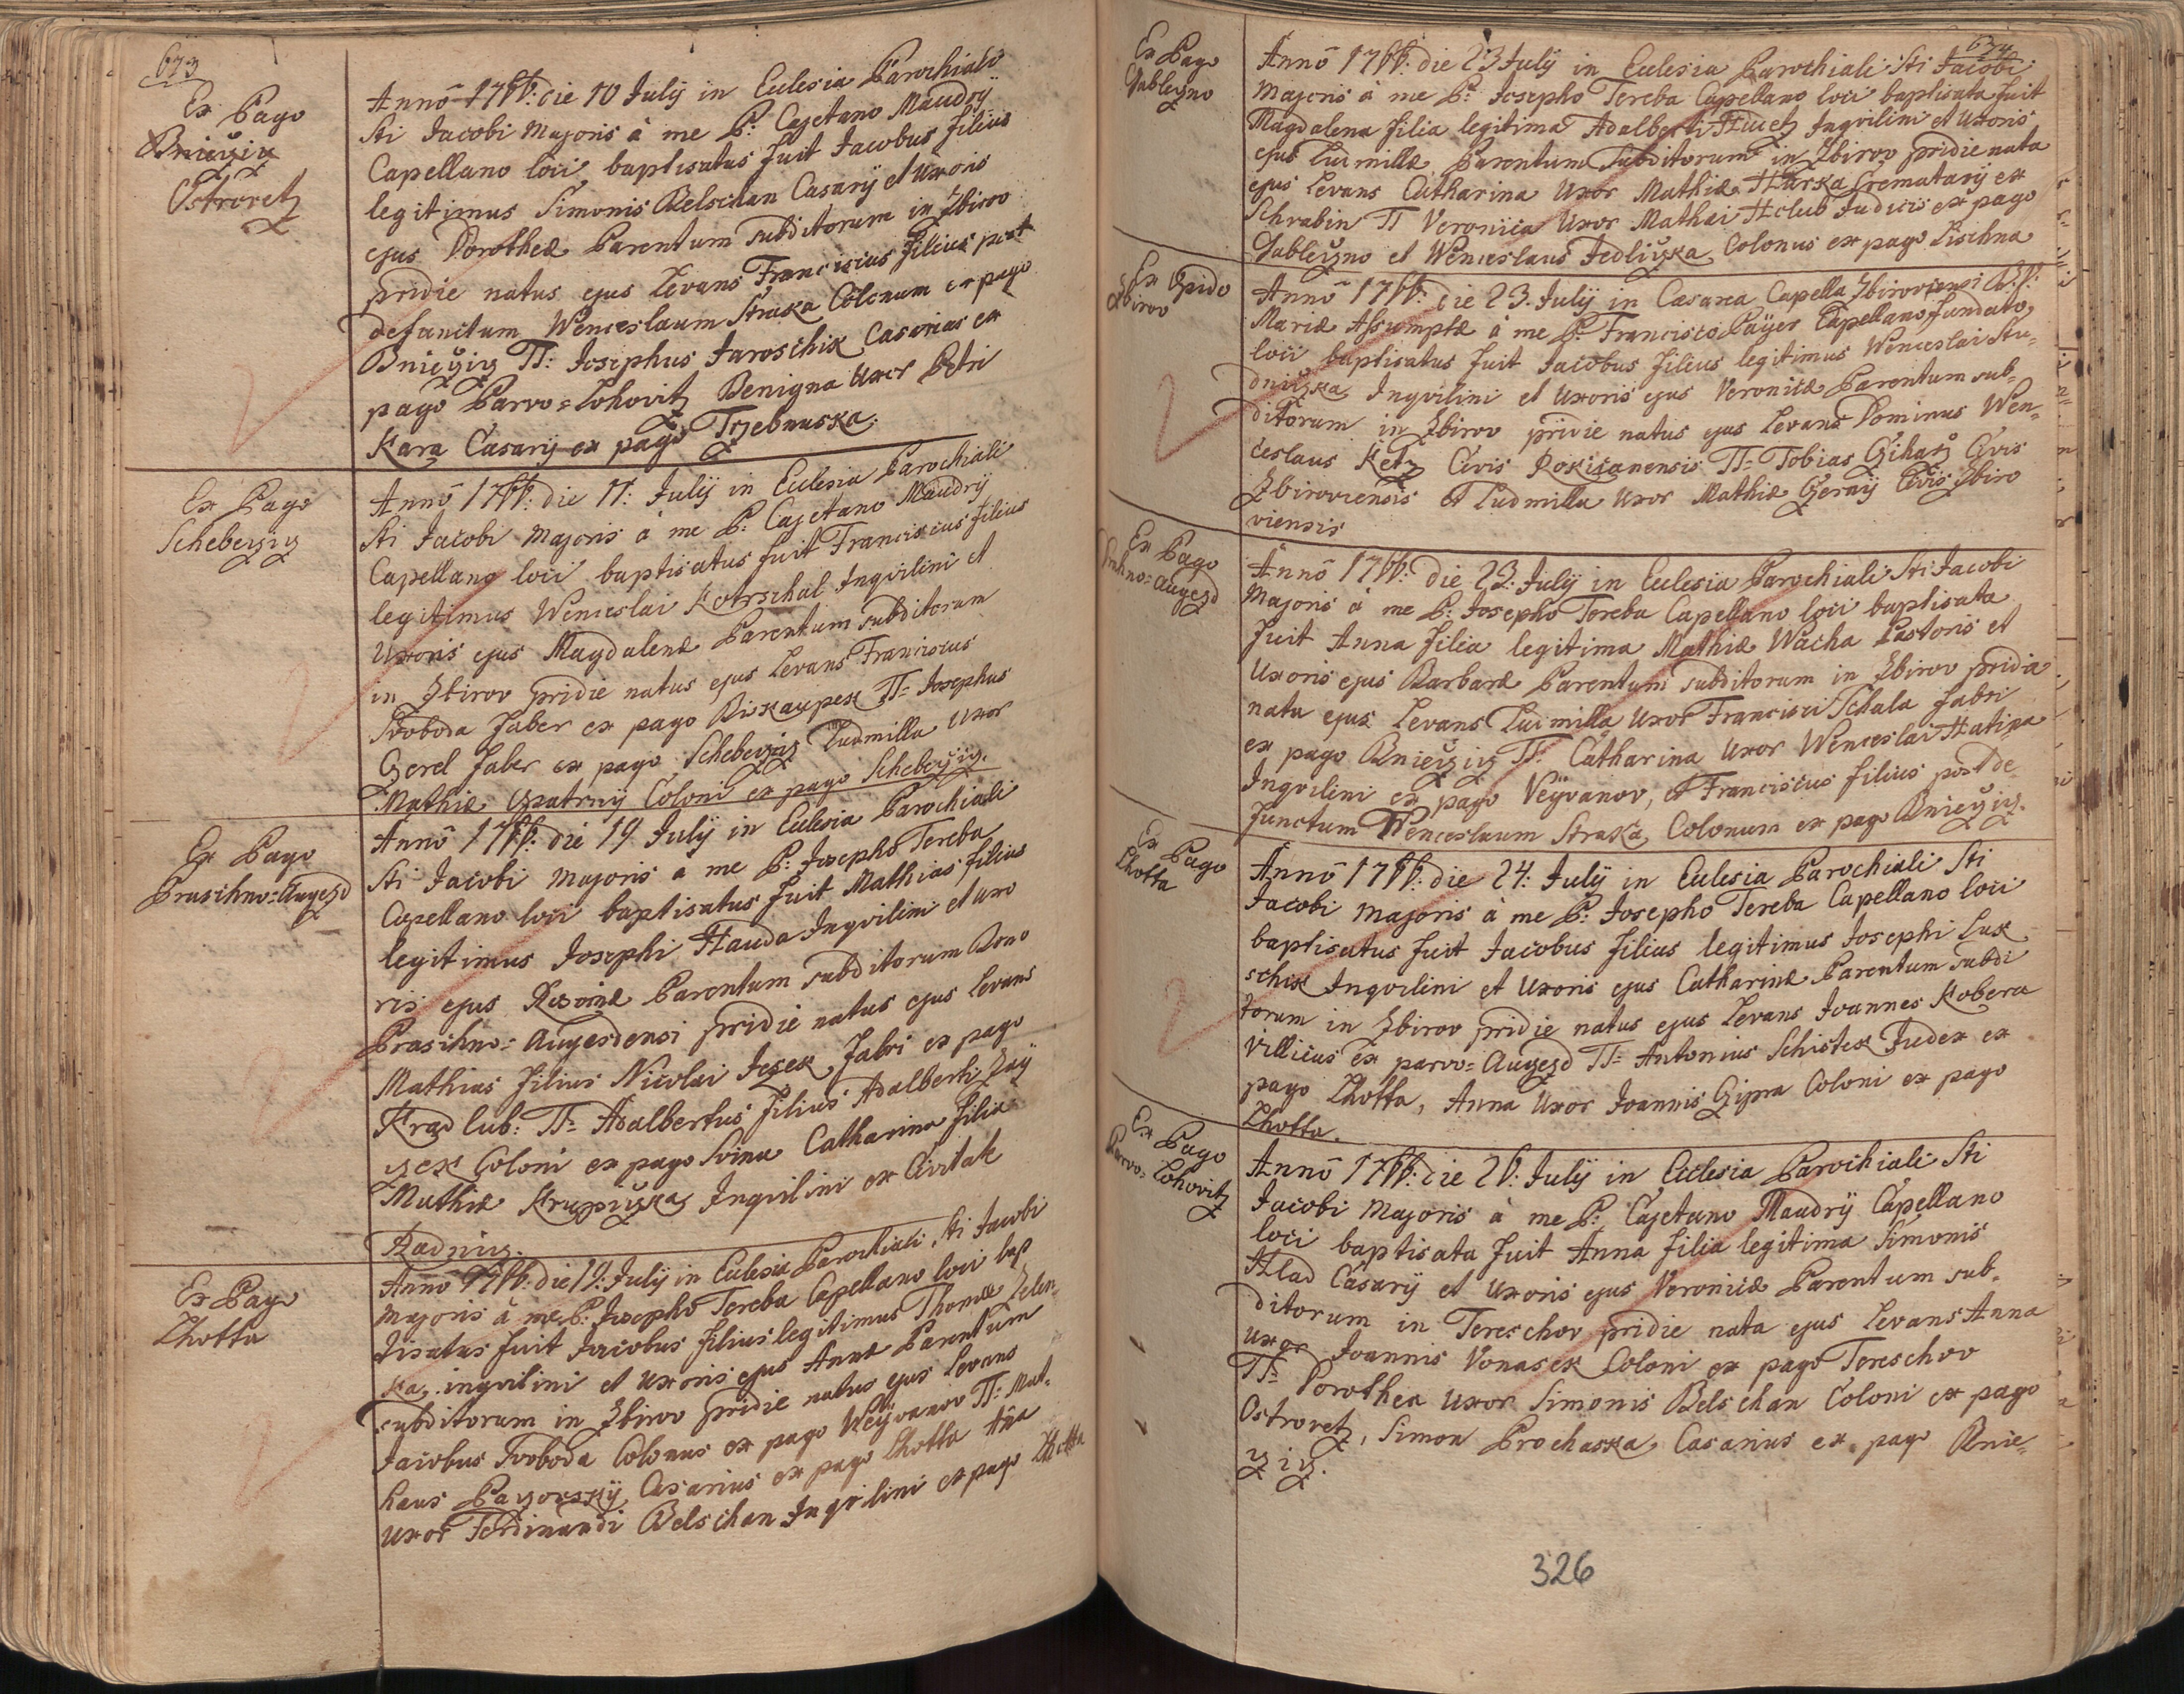 673
Ex Pago
Bnieziz
Ostrovetz
Anno 1766: die 10 July in Eclesia Parochiali
Sti Jacobi Majoris à me P: Cajetano Maudry
Capellano loci baptisatus fuit Jacobus filius
legitimus Simonis Belschan Casarij et Uxoris
ejus Dorotheæ Parentum subditorum in Zbirov
pridie natus ejus Levans Franciscus filius post
defunctum Wenceslaum Straka Colonum ex pago
Bnieziz TT: Josephus Jaroschik Casarius ex
pago Parvo=Lohovitz Benigna Uxor Petri
Kara Casarij ex pago Trzebnuska.
Ex Pago
Scheberziz
Anno 1766: die 11: July in Eclesia Parochiali
Sti Jacobi Majoris à me P: Cajetano Maudrij
Capellano loci baptisatus fuit Franciscus filius
legitimus Wenceslai Kotrschal Inqvilini et
Uxoris ejus Magdalenæ Parentum subditorum
in Zbirov pridie natus ejus Levans Franciscus
Svoboda faber ex pago Biskaupek TT= Josephus
Gerel faber ex pago Scheberziz Ludmilla Uxor
Mathiæ Opatrnij Coloni ex pago Scheberziz.
Ex Pago
Praschno=Augezd
Anno 1766: die 19 July in Eclesia Parochiali
Sti Jacobi Majoris a me P: Josepho Tereba
Capellano loci baptisatus fuit Mathias filius
legitimus Josephi Hauda Inqvilini et uxo
ris ejus Rosinæ Parentum subditorum Dono
Praschno=Augezdensi pridie natus ejus Levans
Mathias filius Nicolai Jezek, fabri ex pago
Kradlub: TT= Adalbertus filius Adalberti Zay
zek Coloni ex pago Svina Catharina filia
Mathiæ Krupiczka Inqvilini ex Civitate
Radniz.
Ex Pago
Lhotta
Anno 1766: die 19: July in Eclesia Parochiali Sti Jacobi
Majoris à me P: Josepho Tereba Capellano loci bap
tisatus fuit Jacobus filius legitimus Thomæ Zelen=
ka, inqvilini et uxoris ejus Annæ Parentum
subditorum in Zbirov pridie natus ejus Levans
Jacobus Svoboda Colonus ex pago Weyvanov TT: Mat=
haus Pazourskij Casarius ex pago Lhotta Ana
Uxor Ferdinandi Belschan Inqvilini ex pago Lhotta
674
Ex Pago
Jableczno
Anno 1766: die 23 July in Eclesia Parochiali Sti Jacobi
Majoris à me P: Josepho Tereba Capellano loci baptisata fuit
Magdalena filia legitima Adalberti Hluetz Inqvilini et Uxoris
ejus Ludmillæ Parentum Subditorum in Zbirov pridie nata
ejus Levans Catharina Uxor Mathiæ Hurka Crematarij ex
Schrabin TT Veronica Uxor Mathæi Holub Judicis ex pago
Jableczno et Wenceslaus Jedliczka, Colonus ex pago Lischna
Ex Opido
Zbirov
Anno 1766: die 23. July in Cæsarea Capella Zbiroviensi B:V:
Mariæ Assumptæ à me P: Francisco Payer Capellano fundato,
loci baptisatus fuit Jacobus filius legitimus Wenceslai Stu=
dniczka Inqvilini et Uxoris ejus Veronicæ Parentum sub=
ditorum in Zbirov pridie natus ejus Levans Dominus Wen=
ceslaus Ketz Civis Rokiczanensis TT= Tobias Cziharz Civis
Zbiroviensis et Ludmilla Uxor Mathiæ Czernij Civis Zbiro
viensis
Ex Pago
Praschno=Augezd
Anno 1766: die 23. July in Eclesia Parochiali Sti Jacobi
Majoris à me P: Josepho Tereba Capellano loci baptisata
fuit Anna filia legitima Mathiæ Wacha Pastoris et
Uxoris ejus Barbaræ Parentum subditorum in Zbirov pridie
nata ejus Levans Ludmilla Uxor Francisci Schala fabri
ex pago Bnieziz TT: Catharina Uxor Wenceslai Hatina
Inqvilini ex pago Veyvanov, et Franciscus filius post de
functum Wenceslaum Straka, Colonum ex pago Bnieziz.
Ex Pago
Lhotta
Anno 1766: die 24: July in Eclesia Parochiali Sti
Jacobi Majoris à me P: Josepho Tereba Capellano loci
baptisatus fuit Jacobus filius legitimus Josephi Luk
schik Inqvilini et Uxoris ejus Catharinæ Parentum subdi
torum in Zbirov pridie natus ejus Levans Joannes Kobera
Villicus ex parvo=Augezd TT= Antonius Schistek Judex ex
pago Lhotta, Anna Uxor Joannis Gipra Coloni ex pago
Lhotta.
Ex Pago
Parvo=Lohovitz
Anno 1766: die 26: July in Ecclesia Parochiali Sti
Jacobi Majoris à me P: Cajetano Maudrij Capellano
loci baptisata fuit Anna filia legitima Simonis
Hlad Casarij et uxoris ejus Veronicæ Parentum sub=
ditorum in Tereschov pridie nata ejus Levans Anna
uxor Joannis Vonasek Coloni ex pago Tereschov
TT= Dorothea uxor Simonis Belschan Coloni ex pago
Ostrovetz, Simon Prochaska, Casarius ex pago Bnie=
ziz.
326